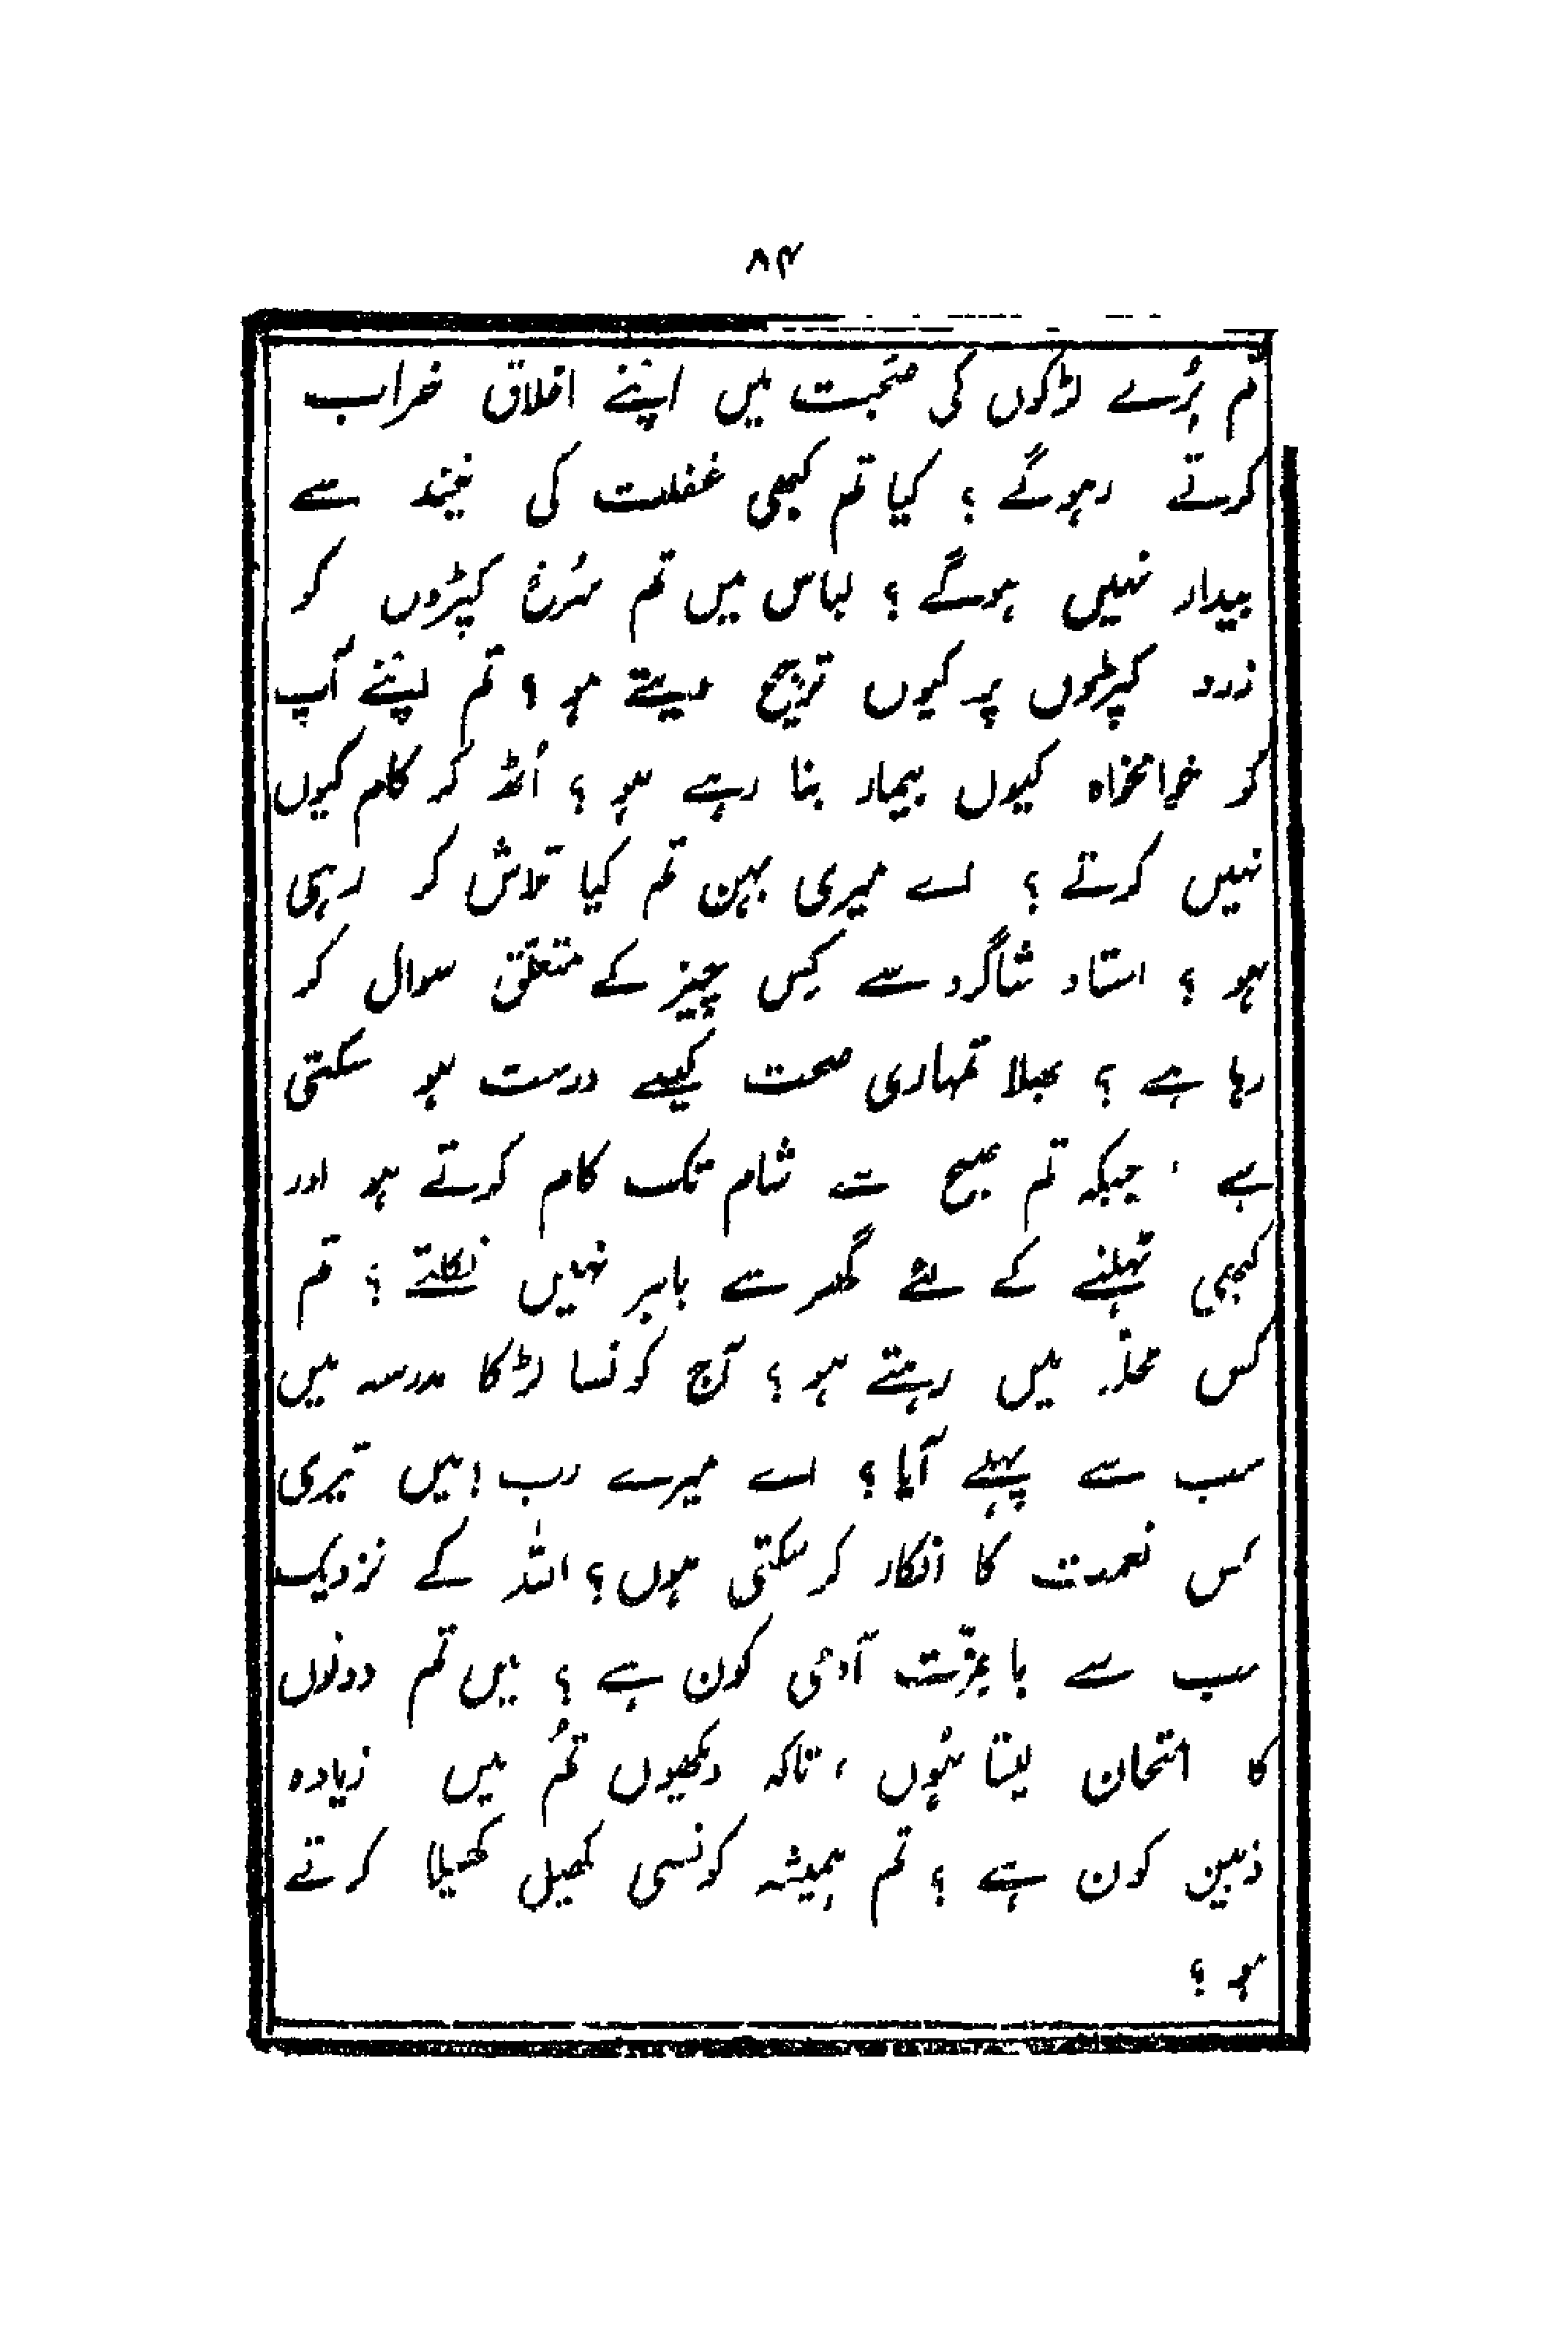 ۸۴
تم بُرے لڑکوں کی صُحبت میں اپنے اخلاق خراب
کرتے رہوگے ؟ کیا تم کبھی غفلت کی نیند سے
بیدار نہیں ہوگے ؟ لباس میں تم سُرخ کپڑوں کو
زرد کپڑوں پر کیوں ترجیح دیتے ہو ؟ تم اپنے آپ
کو خوامخواہ کیوں بیمار بنا رہے ہو ؟ اُٹھ کر کام کیوں
نہیں کرتے ؟ اے میری بہن تم کیا تلاش کر رہی
ہو ؟ استاد شاگرد سے کِس چیز کے متعلّق سوال کر
رہا ہے ؟ بھلا تمہاری صحت کیسے درست ہو سکتی
ہے ، جبکہ تم صبح سے شام تک کام کرتے ہو اور
کبھی ٹہلنے کے لئے گھر سے باہر نہیں نکلتے ؟ تم
کس محلّہ میں رہتے ہو ؟ آج کونسا لڑکا مدرسہ میں
سب سے پہلے آیا ؟ اے میرے رب ! میں تیری
کس نعمت کا انکار کر سکتی ہوں ؟ اللہ کے نزدیک
سب سے با عزّت آدمی کون ہے ؟ میں تم دونوں
کا امتحان لیتا ہُوں ، تاکہ دیکھوں تُم میں زیادہ
ذہین کون ہے ؟ تم ہمیشہ کونسی کھیل کھیلا کرتے
ہو ؟